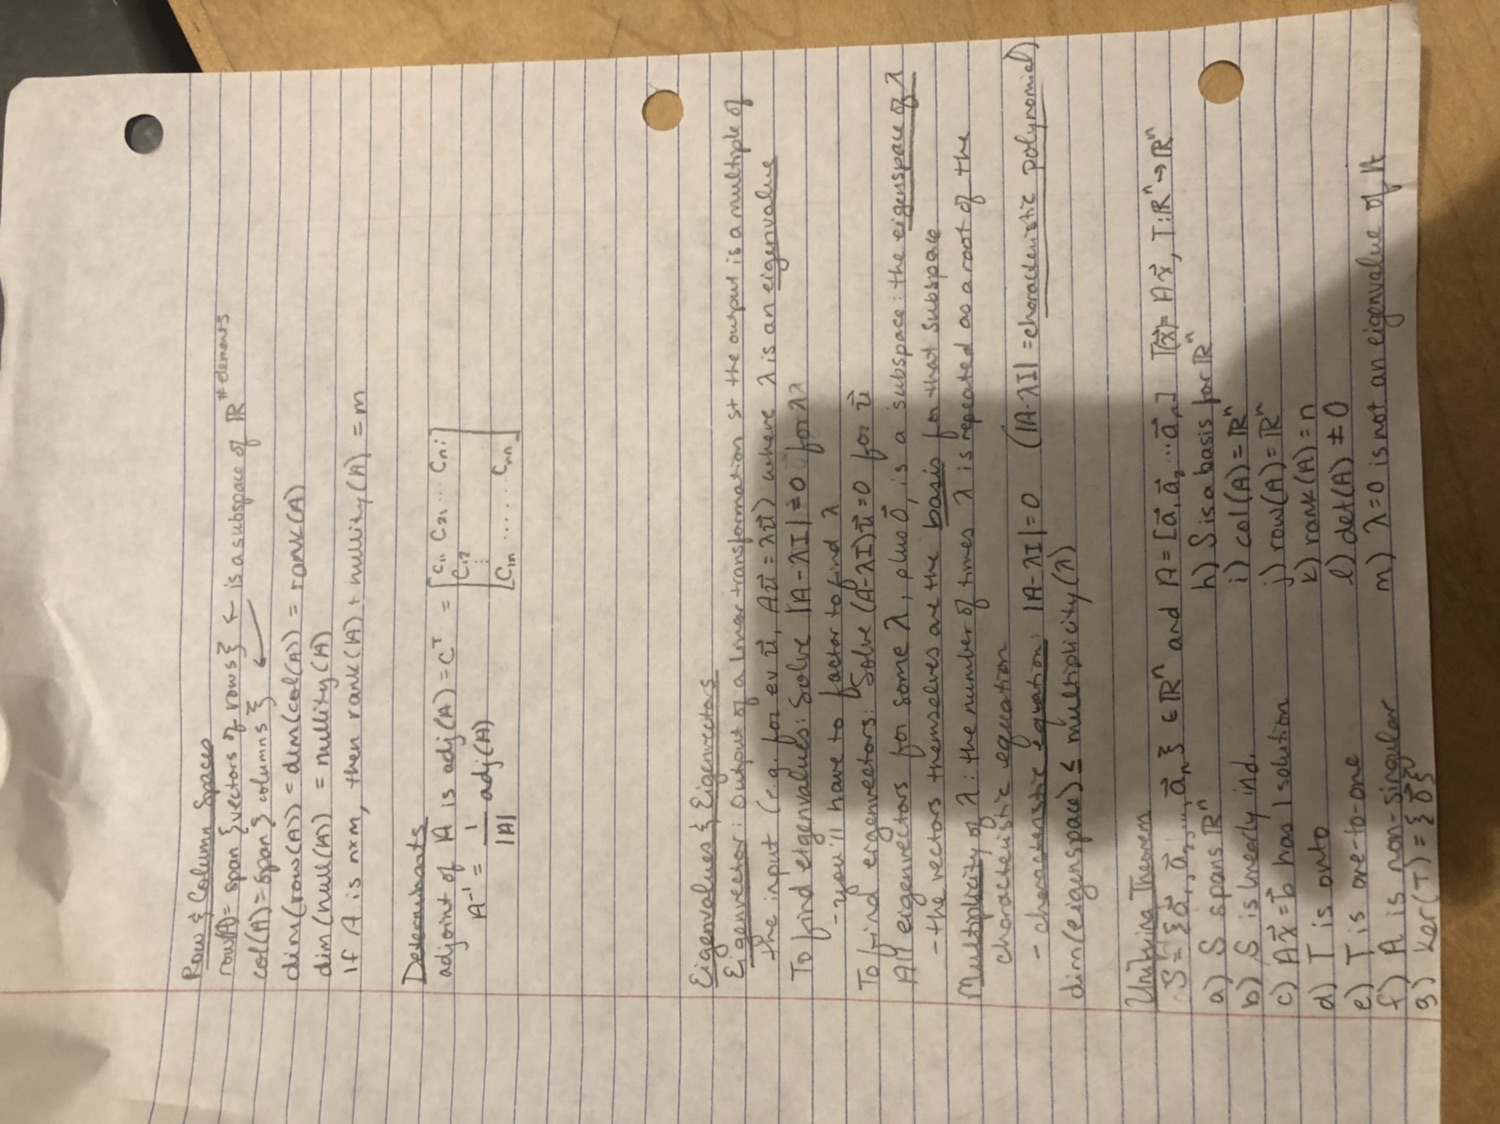 Row & Column Spaces
row(A) = span {vectors of rows} ← is a subspace of ℝ^# elements
col(A) = span { columns } ↙
dim(row(A)) = dim(col(A)) = rank(A)
dim(null(A)) = nullity(A)
If A is n×m, then rank(A) + nullity(A) = m
Determinants
adjoint of A is adj(A) = C^T = [C₁₁ C₂₁ ... Cₙ₁
C₁₂
⋮
C₁ₙ ...... Cₙₙ]
A⁻¹ = 1/|A| adj(A)
Eigenvalues & Eigenvectors
Eigenvector: Output of a linear transformation st the output is a multiple of
the input (e.g. for ev u⃗, Au⃗ = λu⃗) where λ is an eigenvalue
To find eigenvalues: Solve |A-λI| = 0 for λ
- you'll have to factor to find λ
To find eigenvectors: Solve (A-λI)u⃗ = 0 for u⃗
All eigenvectors for some λ, plus 0⃗, is a subspace: the eigenspace of λ
- the vectors themselves are the basis for that subspace
Multiplicity of λ: the number of times λ is repeated as a root of the
characteristic equation
- characteristic equation: |A-λI| = 0 (|A-λI| = characteristic polynomial)
dim(eigenspace) ≤ multiplicity(λ)
Unifying Theorem
S = {a⃗₁, a⃗₂, ..., a⃗ₙ} ∈ ℝⁿ and A = [a⃗₁ a⃗₂ ... a⃗ₙ] T(x⃗) = Ax⃗, T: ℝⁿ → ℝⁿ
a) S spans ℝⁿ
b) S is linearly ind.
c) Ax⃗ = b⃗ has 1 solution
d) T is onto
e) T is one-to-one
f) A is non-singular
g) ker(T) = {0⃗}
h) S is a basis for ℝⁿ
i) col(A) = ℝⁿ
j) row(A) = ℝⁿ
k) rank(A) = n
l) det(A) ≠ 0
m) λ=0 is not an eigenvalue of A